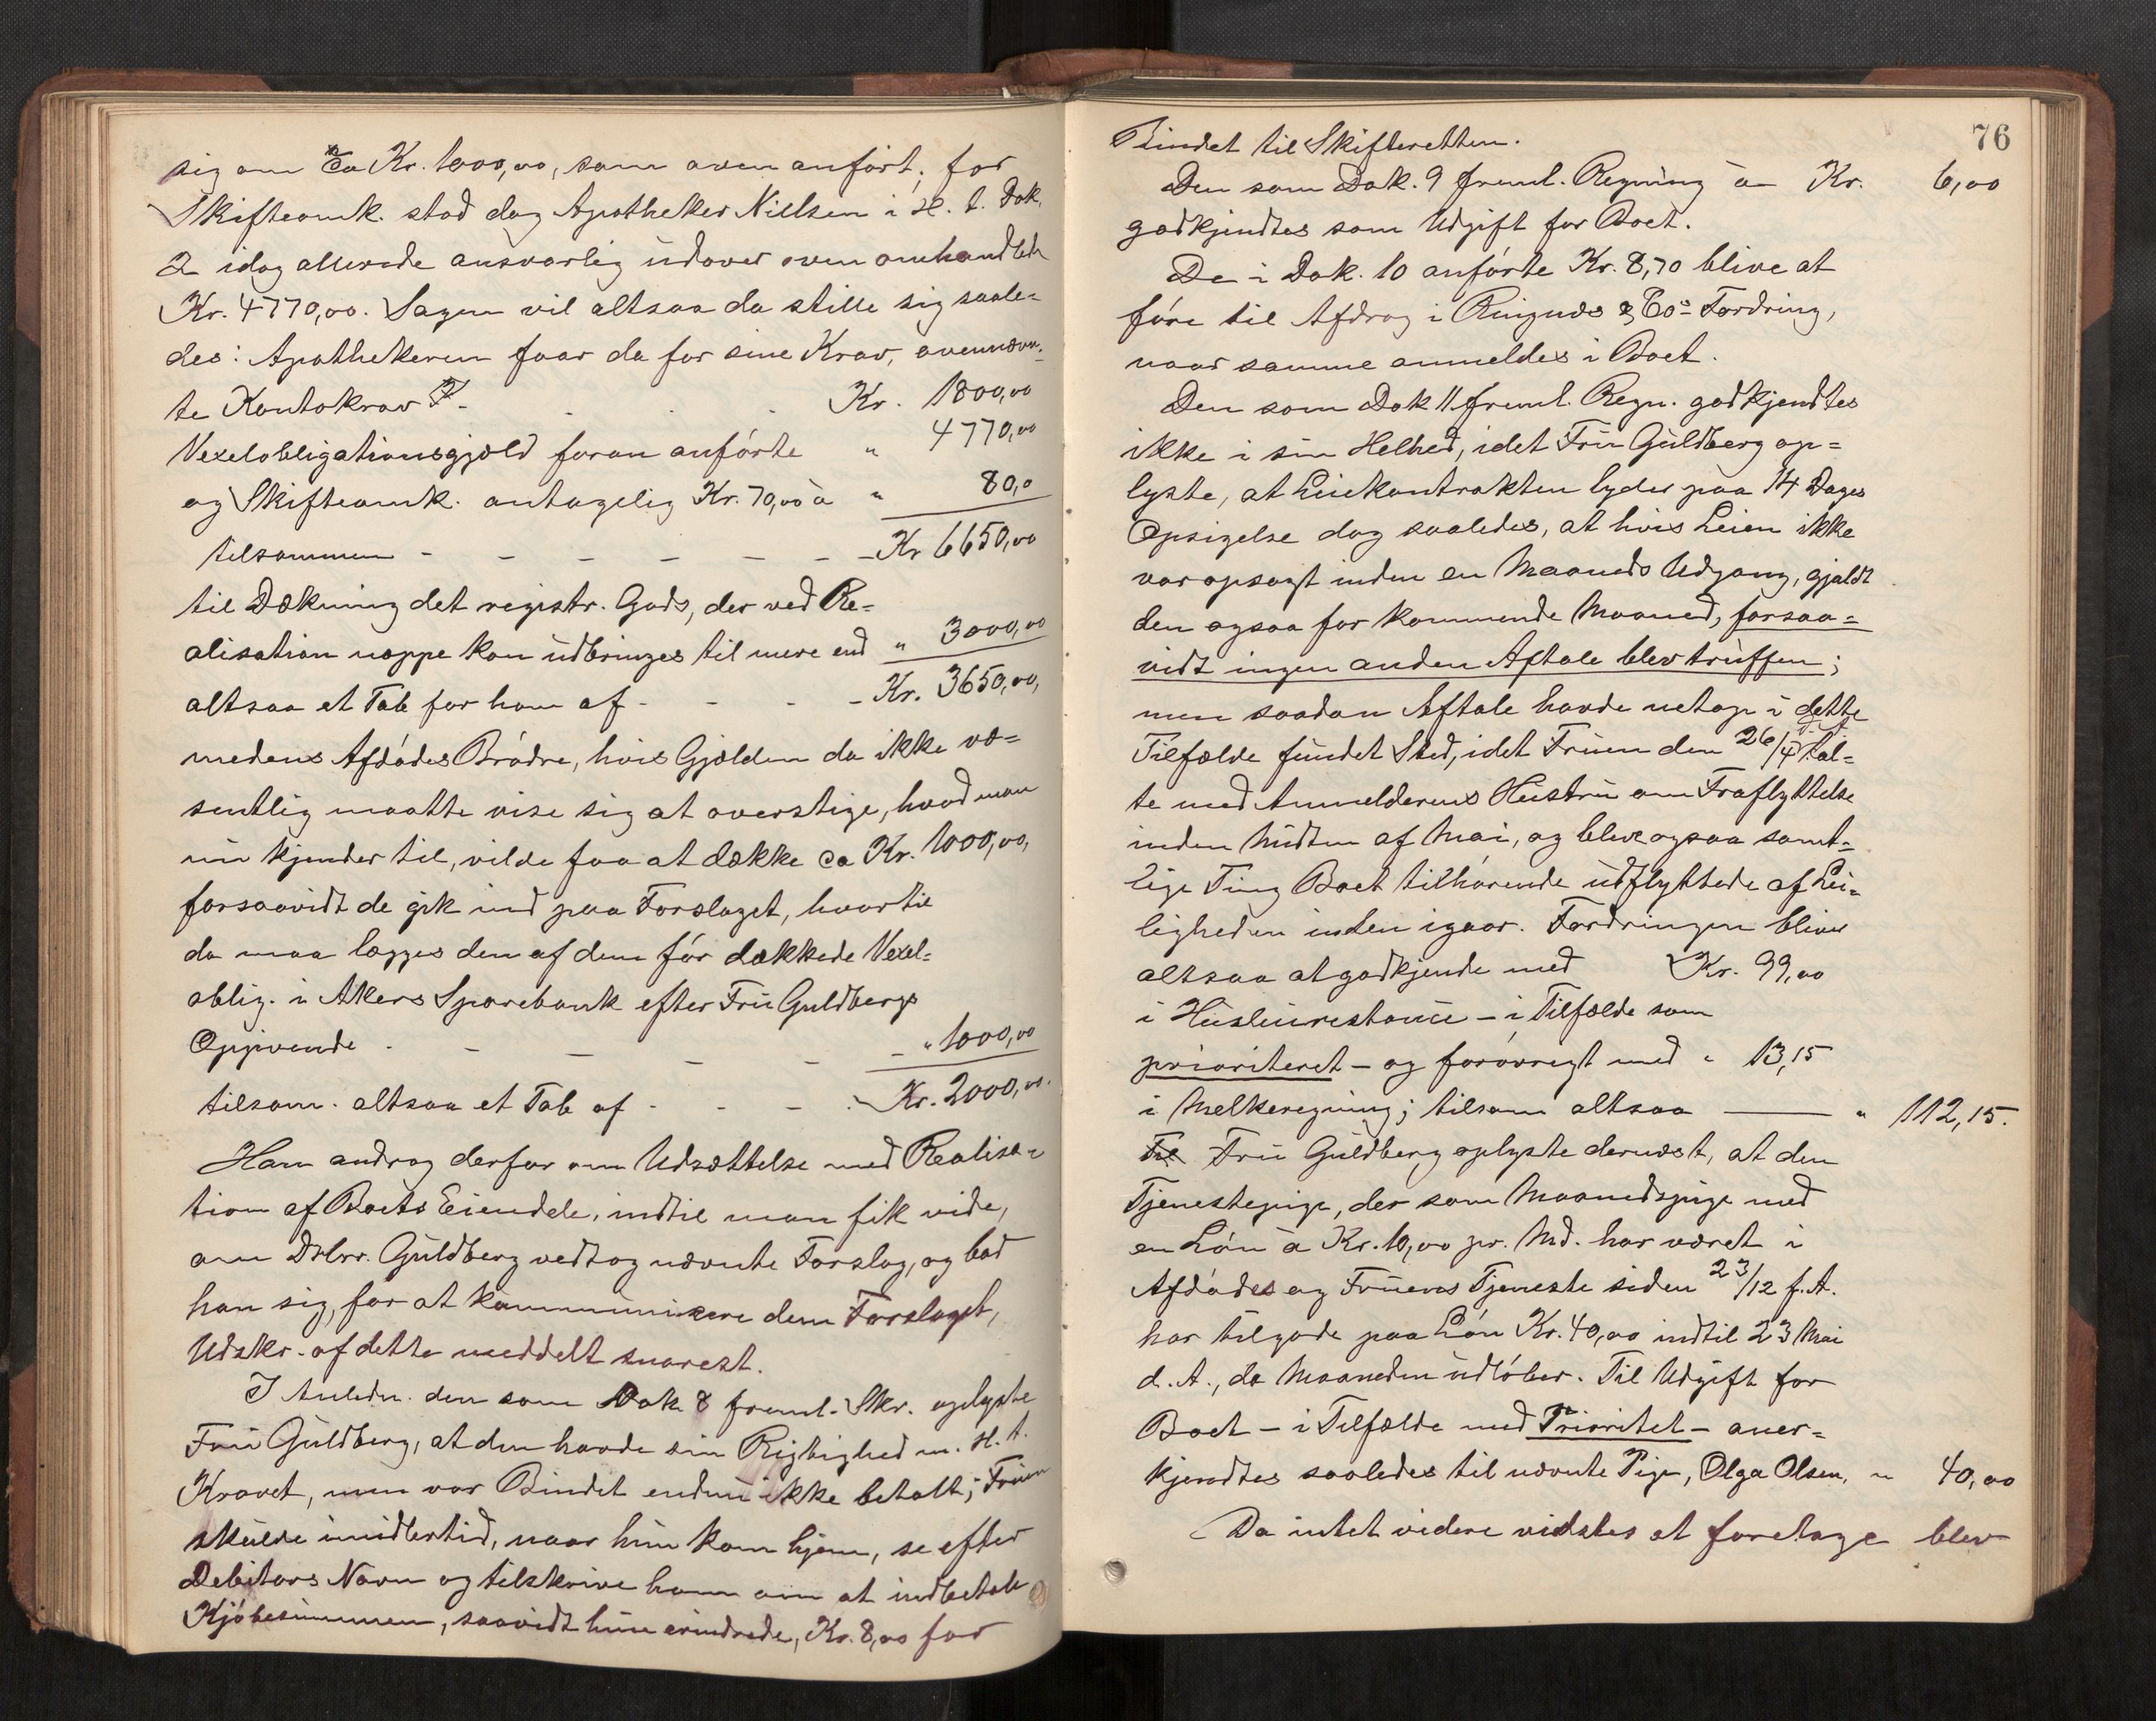 sig om Ca Kr. 1000,00, som oven anført; for
Skifteomk. stod dog Apotheker Nielsen i H. t. Dok.
2 idag allerede ansvarlig udover oven omhandlede
Kr. 4770,00. Sagen vil altsaa da stille sig saale=
des: Apothekeren faar da for sine Krav, ovennævn=
te Kontokrav - . . Kr. 1800,00
Vexelobligationsgjæld foran anførte " 4770,00
og Skifteomk. antagelig Kr. 70,00 à " 80,0
tilsammen - - - - - - Kr 6650,00
til Dækning det registr. Gods, der ved Re=
alisation neppe kan udbringes til mere end " 3000,00
altsaa et Tab for ham af - - - - Kr. 3650,00,
medens Afdødes Brødre, hvis Gjælden da ikke væ=
sentlig maatte vise sig at overstige, hvad man
nu kjender til, vilde faa at dække ca Kr. 1000,00,
forsaavidt de gik ind paa Forslaget, hvortil
da maa lægges den af dem før dækkede Vexel=
oblig. i Akers Sparebank efter Fru Guldbergs
Opgivende - - - - - - " 1000,00
tilsam. altsaa et Tab af - - - . Kr. 2000,00.
Han androg derfor om Udsættelse med Realisa=
tion af Boets Eiendele, indtil man fik vide,
om Dhrr. Guldberg vedtog nævnte Forslag, og bad
han sig, for at kommunicere dem Forslaget,
Udskr. af dette meddelt snarest.
I Anledn. den som Dok. 8 freml. Skr. oplyste
Fru Guldberg, at den havde sin Rigtighed m. H. t.
Kravet, men var Bindet endnu ikke betalt; Fruen
skulde imidlertid, naar hun kom hjem, se efter
Debitors Navn og tilskrive ham om at indbetale
Kjøbesummen, saavidt hun erindrede, Kr. 8,00 for
76
Bindet til Skifteretten.
Den som Dok. 9 freml. Regning à Kr. 6,00
godkjendtes som Udgift for Boet.
De i Dok. 10 anførte Kr. 8,70 blive at
føre til Afdrag i Ringnes & Co's Fordring,
naar samme anmeldes i Boet.
Den som Dok 11 freml. Regn. godkjendtes
ikke i sin Helhed, idet Fru Guldberg op=
lyste, at Leiekontrakten lyder paa 14 Dages
Opsigelse dog saaledes, at hvis Leien ikke
var opsagt inden en Maaneds Udgang, gjaldt
den ogsaa for kommende Maaned, forsaa=
vidt ingen anden Aftale blev truffen;
men saadan Aftale havde netop i dette
Tilfælde fundet Sted, idet Fruen den 26/4 tal=
te med Anmelderens Hustru om Fraflyttelse
inden Midten af Mai, og bleve ogsaa samt=
lige Ting Boet tilhørende udflyttede af Lei=
ligheden inden igaar. Fordringen bliver
altsaa at godkjende med Kr. 99,00
i Husleierestance - i Tilfælde som
prioriteret - og forøvrigt med " 13,15
i Melkeregning; tilsam altsaa — " 112,15.
Fru Guldberg oplyste dernæst, at den
Tjenestepige, der som Maanedspige med
en Løn à Kr. 10,00 pr. Md. har været i
Afdødes og Frueens Tjeneste siden 23/12 f. A.
har tilgode paa Løn Kr. 40,00 indtil 23 Mai
d. A., da Maaneden udløber. Til Udgift for
Boet - i Tilfælde med Prioritet - aner=
kjendtes saaledes til nævnte Pige, Olga Olsen, " 40,00
Da intet videre vidstes at foretage blev